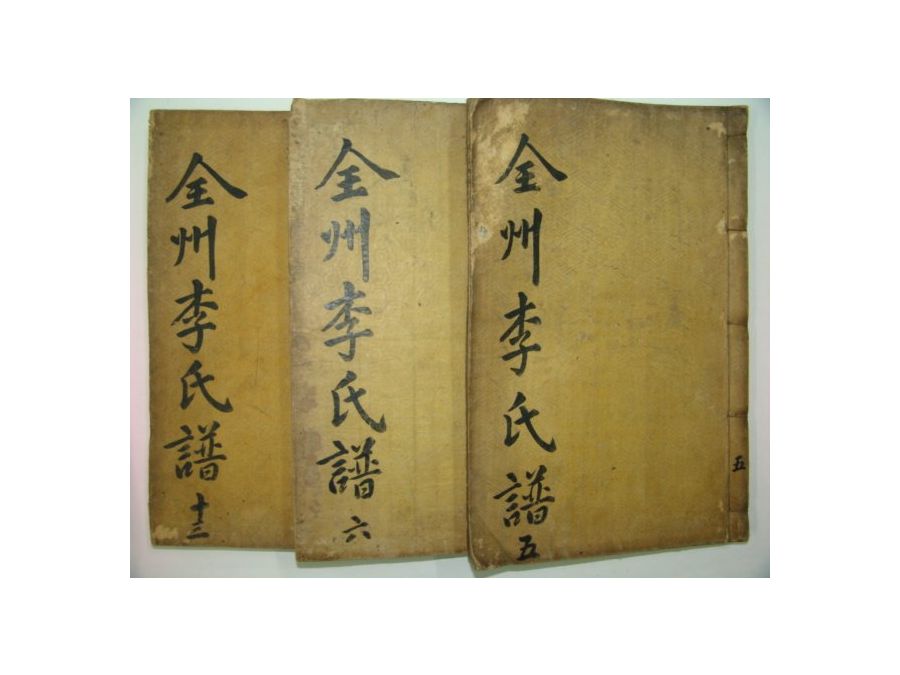 五
全州李氏譜 五
全州李氏譜 六
全州李氏譜 十三